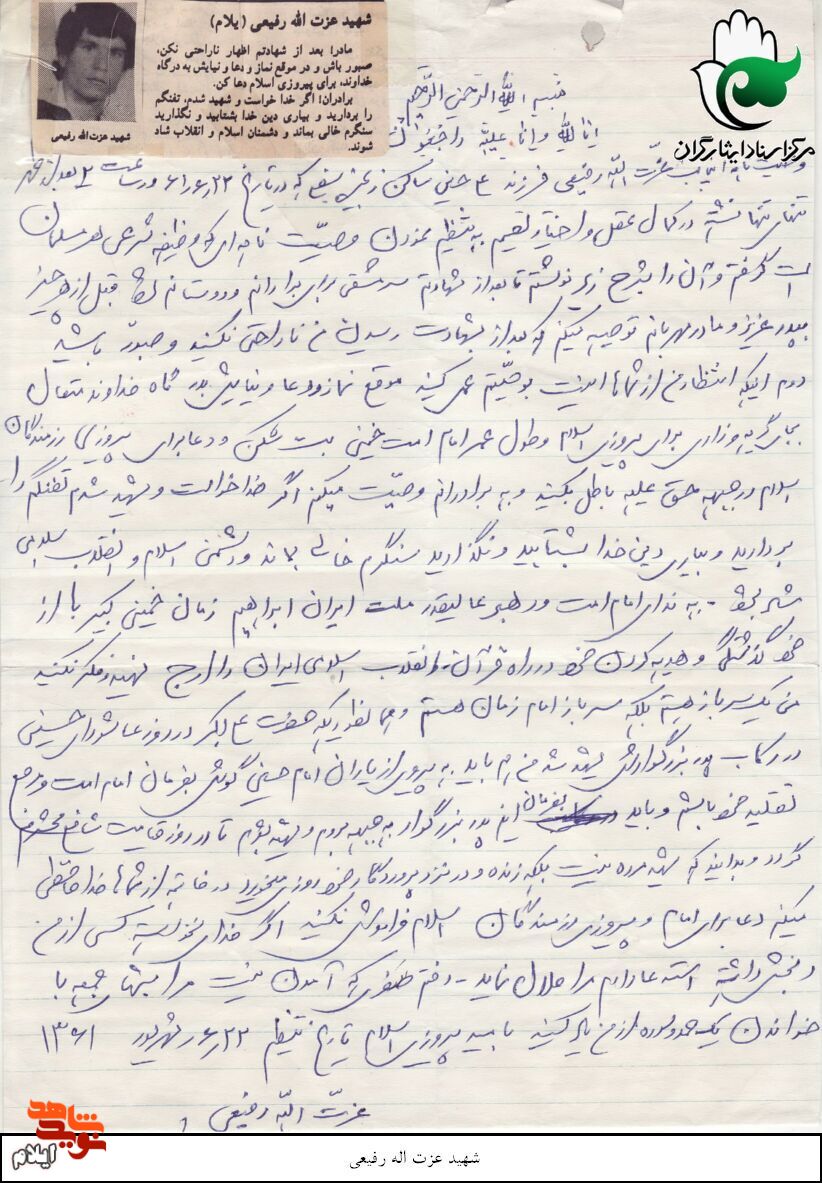 شهید عزت الله رفیعی (ایلام)
مادر! بعد از شهادتم اظهار ناراحتی نکن،
صبور باش و در موقع نماز و دعا و نیایش به درگاه
خداوند، برای پیروزی اسلام دعا کن.
برادران! اگر خدا خواست و شهید شدم، تفنگم
را بردارید و بیاری دین خدا بشتابید و نگذارید
سنگرم خالی بماند و دشمنان اسلام و انقلاب شاد
شوند.
شهید عزت الله رفیعی
مرکز اسناد ایثارگران
بسم الله الرحمن الرحیم
انا لله و انا علیه راجعون
عزت الله رفیعی فرزند ساکن که در تاریخ ۶۱/۶/۲۲ و ساعت ۲ بعد از ظهر
تنهای تنها نشسته در کمال عقل و اختیار تصمیم به تنظیم نمودن وصیت نامه ای که وظیفه شرعی هر مسلمان
است گرفتم و آن را بشرح زیر نوشتم تا بعد از شهادتم سرمشقی برای برادرانم و دوستانم قبل از هر چیز
بپدر عزیز و مادر مهربانم توصیه میکنم که بعد از بشهادت رسیدن من ناراحتی نکنید و صبور باشید
دوم اینکه انتظار من از شماها اینست بوصیتم عمل کنید موقع نماز و دعا و نیایش بدرگاه خداوند متعال
بجای گریه و زاری برای پیروزی اسلام و طول عمر امام امت خمینی بت شکن و دعا برای پیروزی رزمندگان
اسلام در جبهه حق علیه باطل بکنید و به برادرانم وصیت میکنم اگر خدا خواست و شهید شدم تفنگم را
بردارید و بیاری دین خدا بشتابید و نگذارید سنگرم خالی بماند و دشمن اسلام و انقلاب اسلامی
به ندای امام امت و رهبر عالیقدر ملت ایران ابراهیم زمان خمینی کبیر با از
خود گذشتگی و هدیه کردن خود در راه قرآن انقلاب اسلامی ایران را ارج نهید و فکر نکنید
من یک سرباز هستم بلکه سرباز امام زمان هستم و همانطوریکه حضرت علی اکبر در روز عاشورای حسینی
در رکاب پدر بزرگوارش شهید شد من هم باید به پیروی از یاران امام حسین گوش بفرمان امام امت و مرجع
تقلید خود باشم و باید بفرمان این پدر بزرگوار به جبهه بروم و شهید بشوم تا در روز قیامت
گردد و بدانید که شهید مرده نیست بلکه زنده و در نزد پروردگار خود روزی میخورد در خاتمه از شماها خداحافظی
میکنم دعا برای امام و پیروزی رزمندگان اسلام فراموش نکنید اگر خدای نخواسته کسی از من
رنجش داشته استدعا دارم مرا حلال نماید - که آمدن نیست مرا شبهای جمعه با
خواندن یک حمد و سوره از من یاد کنید بامید پیروزی اسلام تاریخ تنظیم ۲۲ شهریور ۱۳۶۱
عزت الله رفیعی
شاهد
نوید
ایلام
شهید عزت اله رفیعی